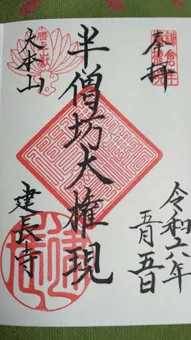 奉拝
令和六年
五月五日
半僧坊大権現
大本山
建長寺